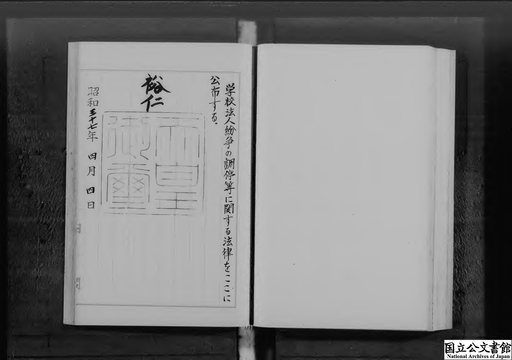 学校法人紛争の調停等に関する法律をここに
公布する。
裕仁
天皇
御璽
昭和三十七年四月四日
国立公文書館
National Archives of Japan